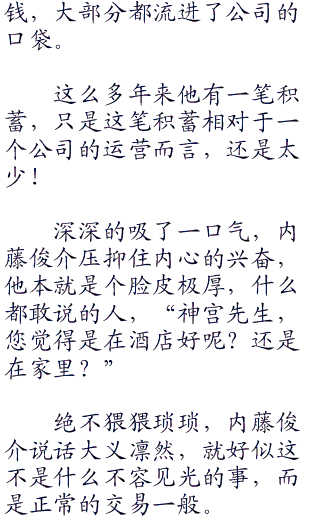 钱，大部分都流进了公司的
口袋。
这么多年来他有一笔积
蓄，只是这笔积蓄相对于一
个公司的运营而言，还是太
少！
深深的吸了一口气，内
藤俊介压抑住内心的兴奋，
他本就是个脸皮极厚，什么
都敢说的人，“神宫先生，
您觉得是在酒店好呢？还是
在家里？”
绝不猥猥琐琐，内藤俊
介说话大义凛然，就好似这
不是什么不容见光的事，而
是正常的交易一般。